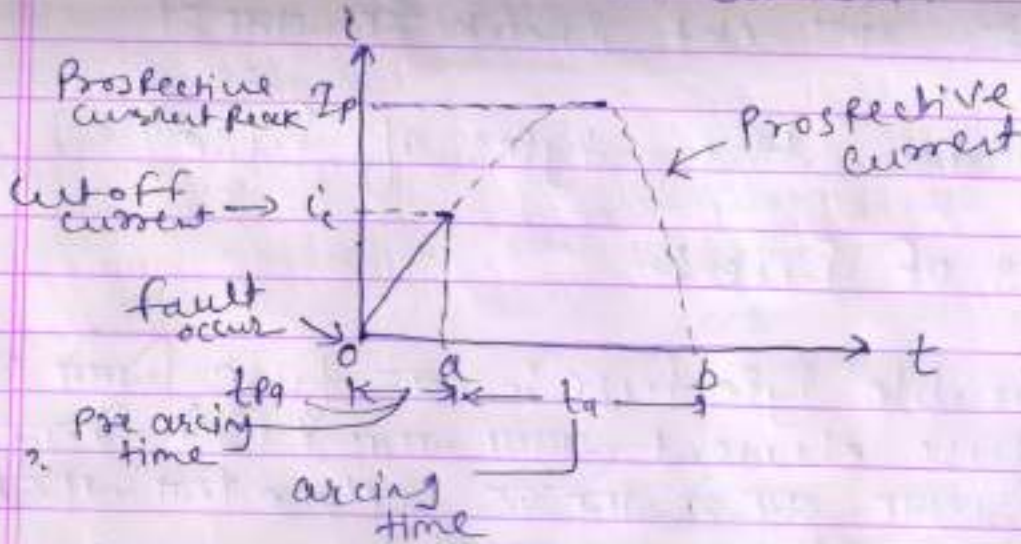 i
Prospective
current Peak Ip
Prospective
current
cut off
current → ic
fault
occur
0
a
b
t
tpa
ta
pre arcing
time
?.
arcing
time